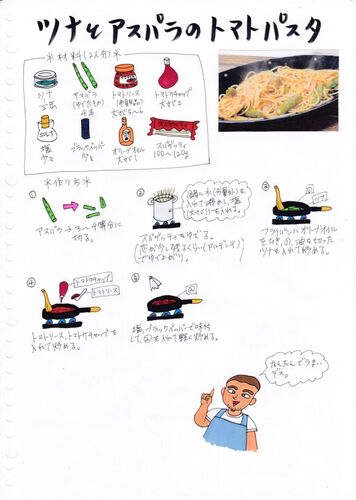 ツナとアスパラのトマトパスタ
＊材料(2人分)＊
ツナ
1缶
アスパラ
(ゆでたもの)
4本
トマトソース
(市販品)
トマトケチャップ
大さじ2
SALT
塩
少々
ブラックペッパー
少々
オリーブオイル
大さじ1
スパゲッティ
100〜120g
＊作り方＊
①
アスパラ→3〜4等分に
切る。
②
鍋に水(分量外)を
入れて沸かし、塩
(大さじ1)を入れる。
スパゲッティをゆでる。
(芯が少し残るくらい(アルデンテ)
でゆで上がり)。
③
フライパンにオリーブオイル
をひき、①、油を切った
ツナを入れて炒める。
④
トマトケチャップ
トマトソース
トマトソース、トマトケチャップを
入れて炒める。
⑤
②
塩、ブラックペッパーで味付
して、②を入れて軽く炒める。
かんたんでうまい
デス。